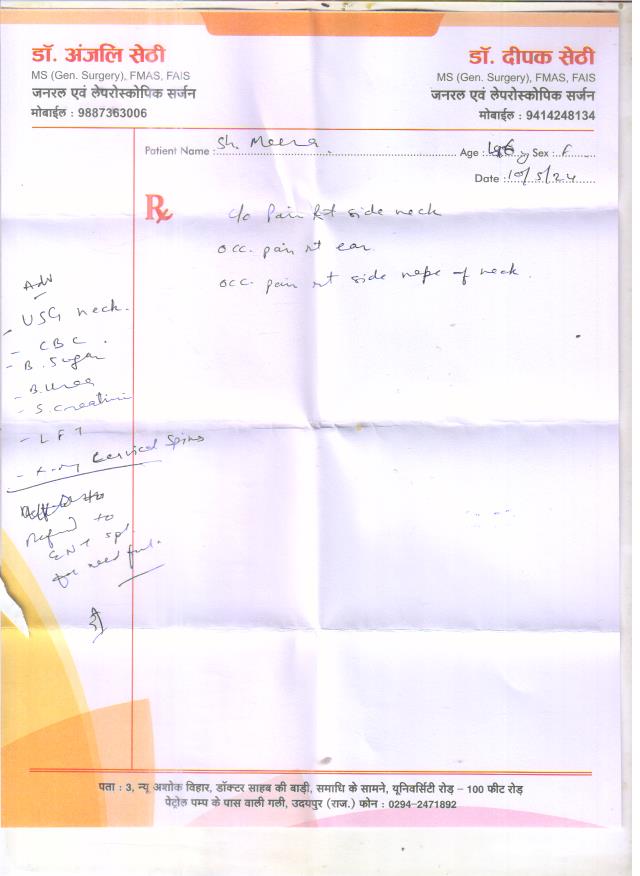 डॉ. अंजलि सेठी
MS (Gen. Surgery), FMAS, FAIS
जनरल एवं लेपरोस्कोपिक सर्जन
मोबाईल : 9887363006
डॉ. दीपक सेठी
MS (Gen. Surgery), FMAS, FAIS
जनरल एवं लेपरोस्कोपिक सर्जन
मोबाईल : 9414248134
Patient Name : Sh. Meena Age : Sex : F
Date : 10/5/24
Rx
c/o Pain Rt side neck
occ. pain rt ear
occ. pain rt side nape of neck.
Adv
- USG neck.
- CBC.
- B. Sugar
- B. Urea
- S. Creatinin
- LFT
- X-ray Cervical Spine
Refer to
ENT spl.
for needful.
पता : 3, न्यू अशोक विहार, डॉक्टर साहब की बाड़ी, समाधि के सामने, यूनिवर्सिटी रोड़ – 100 फीट रोड़
पेट्रोल पम्प के पास वाली गली, उदयपुर (राज.) फोन : 0294-2471892